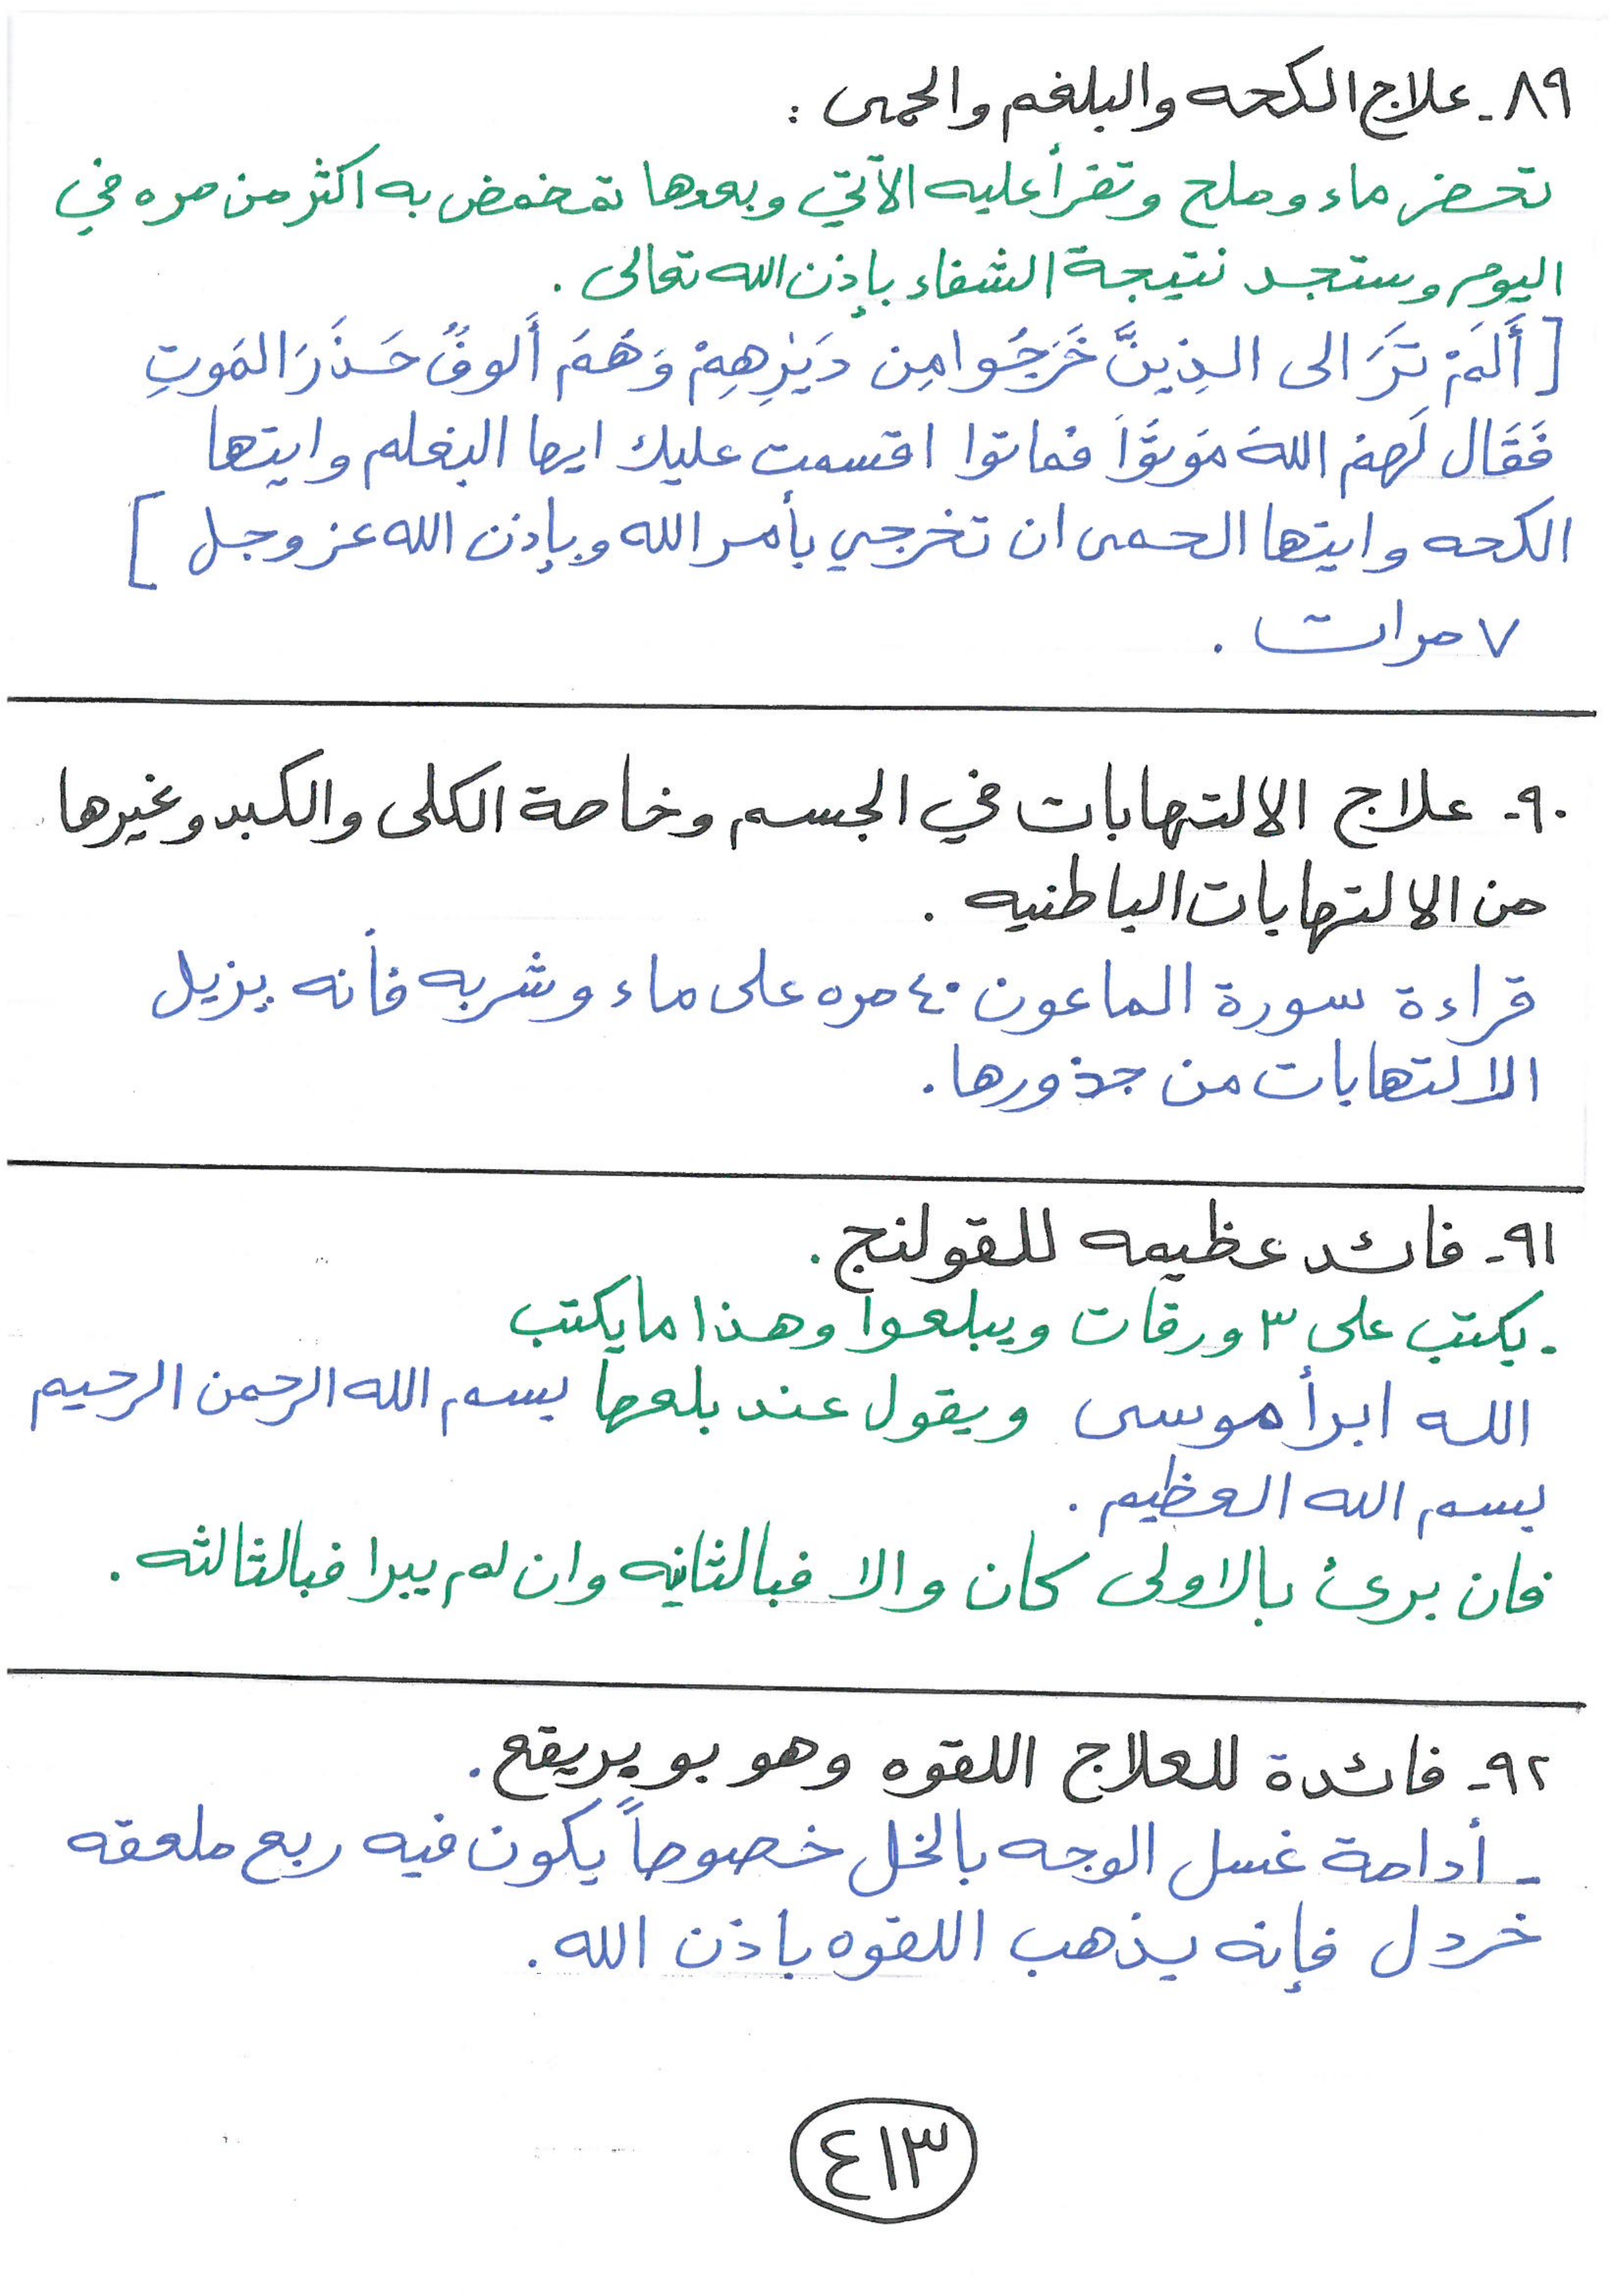 ٨٩- علاج الكحه والبلغم والحمى :
تحضر ماء وملح وتقرأ عليه الآتي وبعدها تمضمض به اكثر من مره في
اليوم وستجد نتيجة الشفاء بإذن الله تعالى .
[ أَلَمْ تَرَ الى الذِينَّ خَرَجُوا مِن دَيَرِهِمْ وَهُمَ أَلوفُ حَذَرَ المَوتِ
فَقَال لَهمْ اللهَ مَوتُوَّا فماتوا اقتسمت عليك ايها البغلم وايتها
الكحه وايتها الحمى ان تخرجي بأمر الله وبإذن الله عز وجل ]
٧ مرات .
٩٠- علاج الالتهابات في الجسم وخاصة الكلى والكبد وغيرها
من الالتهابات الباطنيه .
قراءة سورة الماعون ٤٠ مره على ماء وشربه فأنه يزيل
الالتهابات من جذورها .
٩١- فائد عظيمه للقولنج .
- يكتب على ٣ ورقات ويبلعوا وهذا مايكتب
الله ابرأ موسى ويقول عند بلعها بسم الله الرحمن الرحيم
بسم الله العظيم .
فان برئ بالاولى كان والا فبالثانيه وان لم يبرا فبالثالثه .
٩٢- فائدة للعلاج اللقوه وهو بو بريقع .
- أدامة غسل الوجه بالخل خصوصاً يكون فيه ربع ملعقه
خردل فإنه يذهب اللقوه باذن الله .
٤١٣